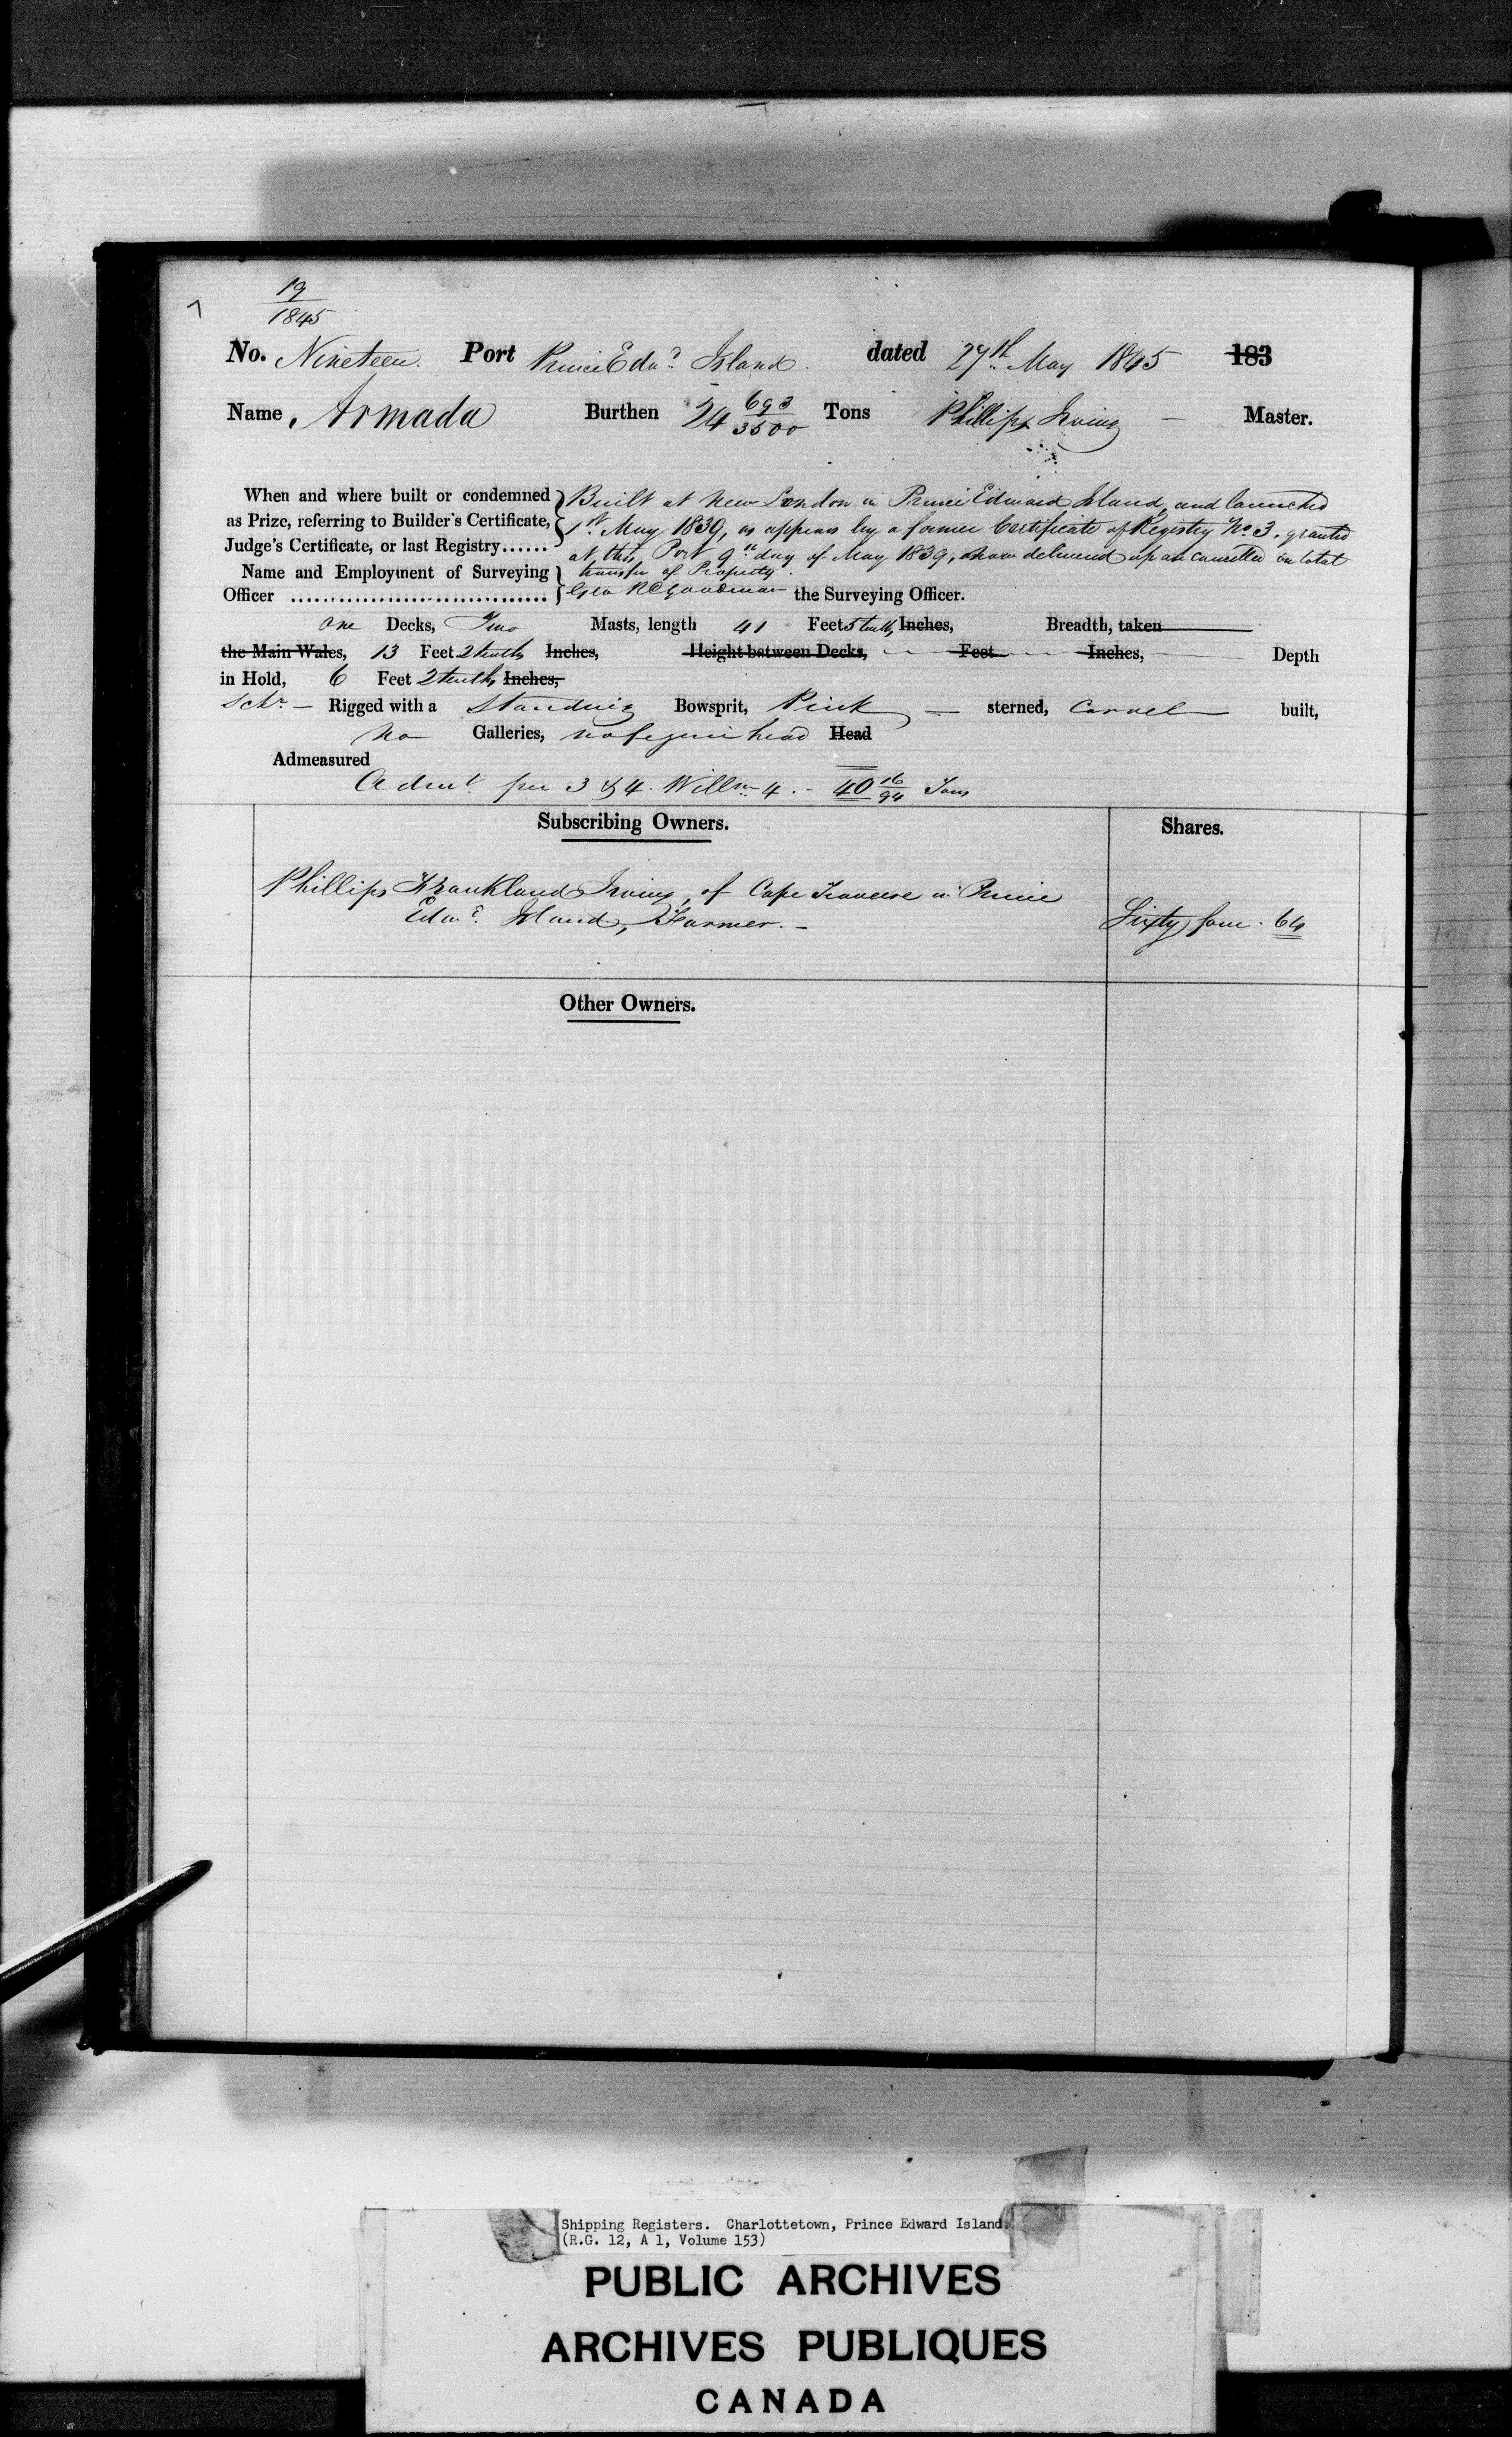 7
19
1845
No. Nineteen. Port Prince Edwd. Island. dated 27th May 1845 183
Name, Armada Burthen 24 693/3500 Tons Phillips Irving - Master.
When and where built or condemned as Prize, referring to Builder's Certificate, Judge's Certificate, or last Registry......
Built at New London in Prince Edward Island, and launched
1st. May 1839, as appears by a former Certificate of Registry No. 3. granted
at this Port 9th day of May 1839, now delivered up and cancelled on total
transfer of Property.
Name and Employment of Surveying Officer ................................ Geo R Goodman the Surveying Officer.
One Decks, Two Masts, length 41 Feet 5 tenths Inches, Breadth, taken
the Main Wales, 13 Feet 2 tenths Inches, Height between Decks, Feet Inches, Depth
in Hold, 6 Feet 2 tenths Inches,
Schr. - Rigged with a Standing Bowsprit, Pink - sterned, Carvel built,
No Galleries, no figure head Head
Admeasured
Admt. per 3 & 4. Willm. 4. - 40 16/94 Tons
Subscribing Owners. Shares.
Phillips Frankland Irving, of Cape Traverse in Prince
Edwd. Island, Farmer. - Sixty four. 64
Other Owners.
Shipping Registers. Charlottetown, Prince Edward Island.
(R.G. 12, A 1, Volume 153)
PUBLIC ARCHIVES
ARCHIVES PUBLIQUES
CANADA